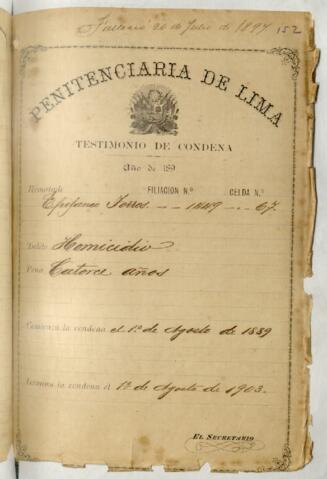 Falleció 20 de Julio de 1897 152
PENITENCIARIA DE LIMA
TESTIMONIO DE CONDENA
Año de 189
Rematado FILIACION N.º CELDA N.º
Epifanio Torres. -- 1449 -- 67.
Delito Homicidio
Pena Catorce años
Comienza la condena el 1º de Agosto de 1889
Termina la condena el 1º de Agosto de 1903.
EL SECRETARIO